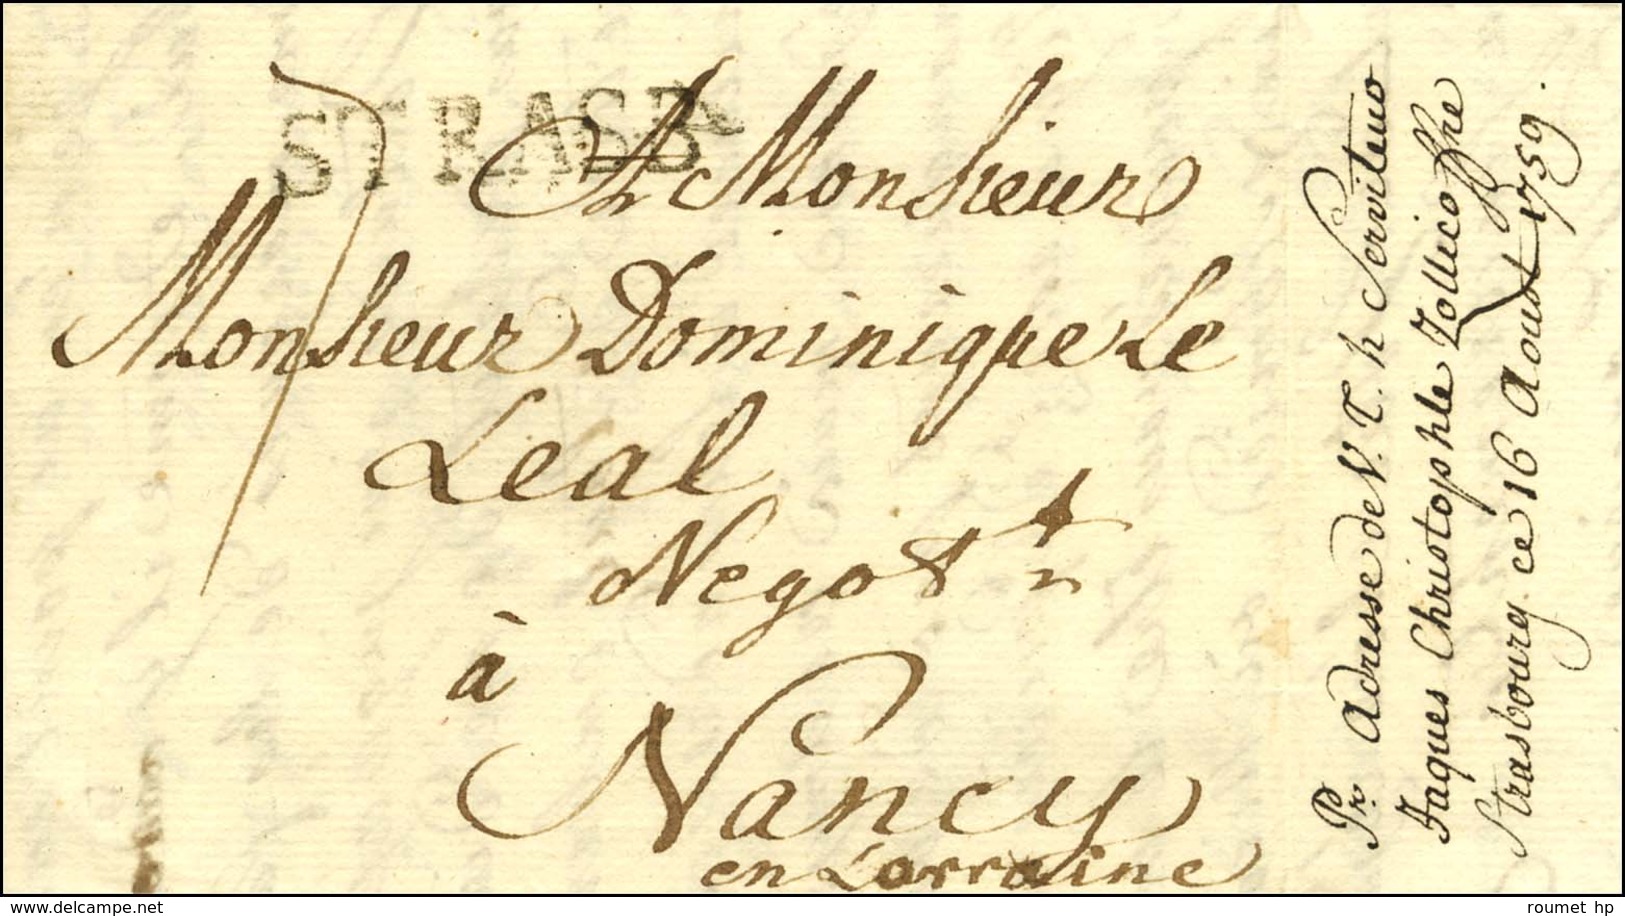 STRASB
A Monsieur
Monsieur Dominique Le
Leal
Negot.t
à
Nancy
en Lorraine
Pr. Adresse de V. T. h Serviteur
Jaques Christophle Zollicoffre
Strasbourg ce 16 Aoust 1759.
delcampe.net
roumet hp